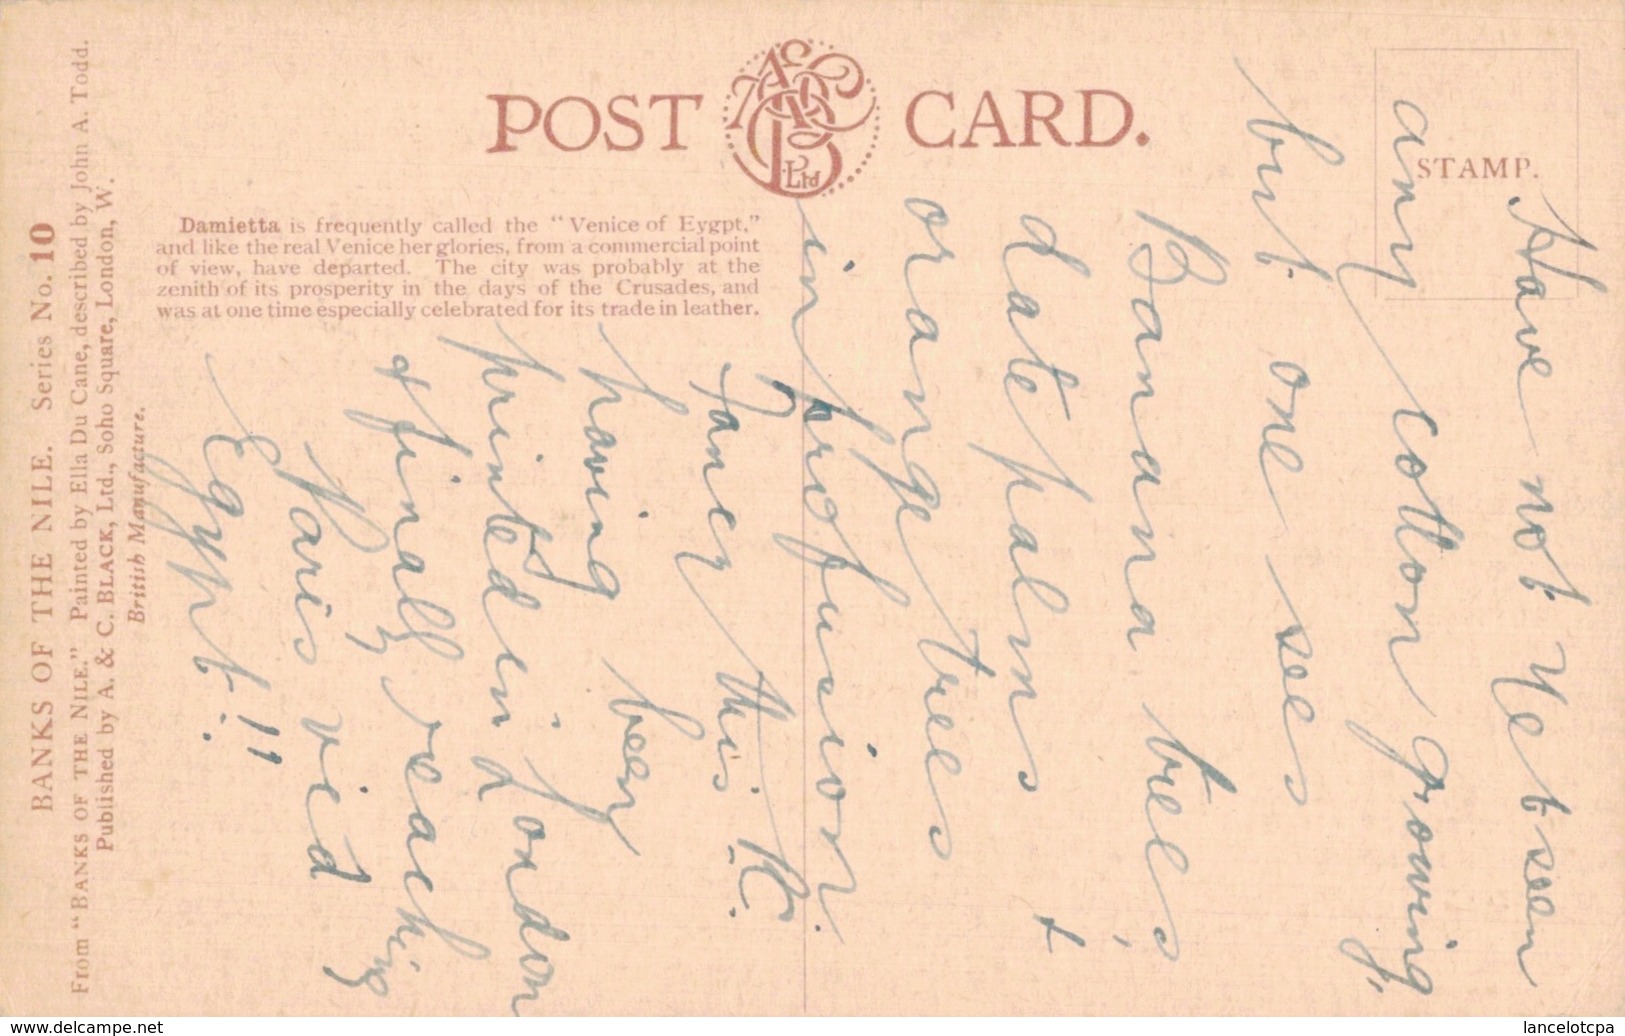 POST CARD.
A&CB Ltd
STAMP.
Damietta is frequently called the "Venice of Eygpt,"
and like the real Venice her glories, from a commercial point
of view, have departed. The city was probably at the
zenith of its prosperity in the days of the Crusades, and
was at one time especially celebrated for its trade in leather.
BANKS OF THE NILE. Series No. 10
From "BANKS OF THE NILE." Painted by Ella Du Cane, described by John A. Todd.
Published by A. & C. BLACK, Ltd., Soho Square, London, W.
British Manufacture.
Have not yet seen
any cotton growing,
but one sees
Banana trees,
date palms +
orange trees
in profusion.
Fancy this P.C.
having been
printed in London
& finally reaching
Paris via
Egypt!!
www.delcampe.net
lancelotcpa